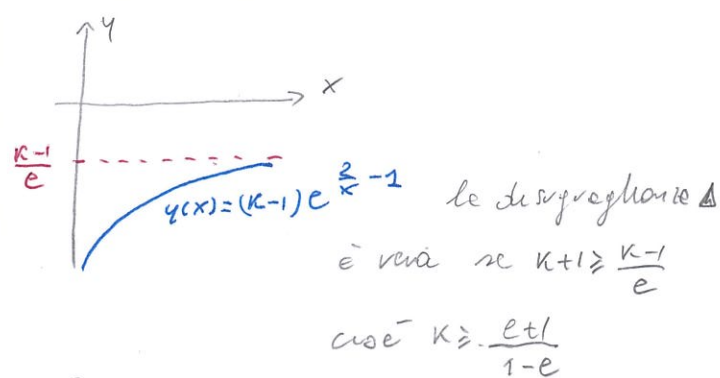 y
x
K-1
e
y(x)=(K-1) e^{2/x - 1}
la disuguaglianza Δ
è vera se K+1 ≥ \frac{K-1}{e}
cioè K ≥ \frac{e+1}{1-e}